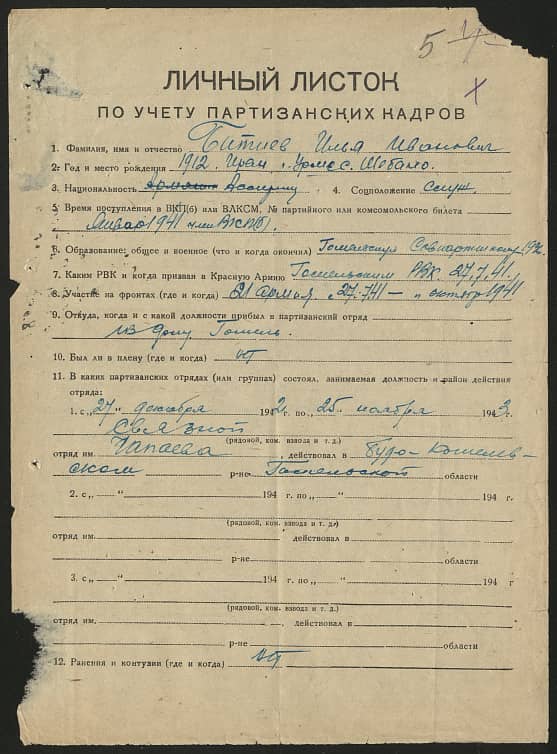 5
ЛИЧНЫЙ ЛИСТОК
ПО УЧЕТУ ПАРТИЗАНСКИХ КАДРОВ
1. Фамилия, имя и отчество Битиев Илья Иванович
2. Год и место рождения 1912. Иран г. Урмия с. Шебано.
3. Национальность Ассириец 4. Соцположение Служ.
5. Время поступления в ВКП(б) или ВЛКСМ, № партийного или комсомольского билета
Январь 1941 член ВКП(б).
6. Образование: общее и военное (что и когда окончил) Гомельскую Совпартшколу
7. Каким РВК и когда призван в Красную Армию Гомельским РВК. 27.7.41.
8. Участие на фронтах (где и когда) 21 Армия. 27.7.41 — октябрь 1941
9. Откуда, когда и с какой должности прибыл в партизанский отряд
из дому Гомель.
10. Был ли в плену (где и когда) нет
11. В каких партизанских отрядах (или группах) состоял, занимаемая должность и район действия
отряда:
1. с „27“ декабря 1942 г. по „25“ ноября 1943 г.
Связной
(рядовой, ком. взвода и т. д.)
отряд им. Чапаева, действовал в Буда-Кошелев-
ском р-не Гомельской области
2. с „ “ 194 г. по „ “ 194 г.
(рядовой, ком. взвода и т. д.)
отряд им. действовал в
р-не области
3. с „ “ 194 г. по „ “ 194 г
(рядовой, ком. взвода и т. д.)
отряд им. действовал в
р-не области
12. Ранения и контузии (где и когда) нет